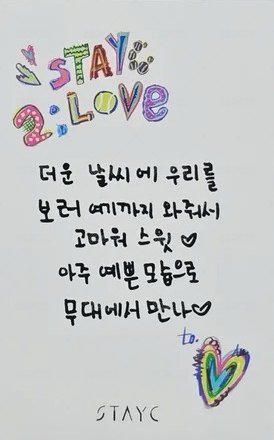 STAYC
2: LOVE
더운 날씨에 우리를
보러 여기까지 와줘서
고마워 스윗 ♡
아주 예쁜 모습으로
무대에서 만나♡
to.
STAYC